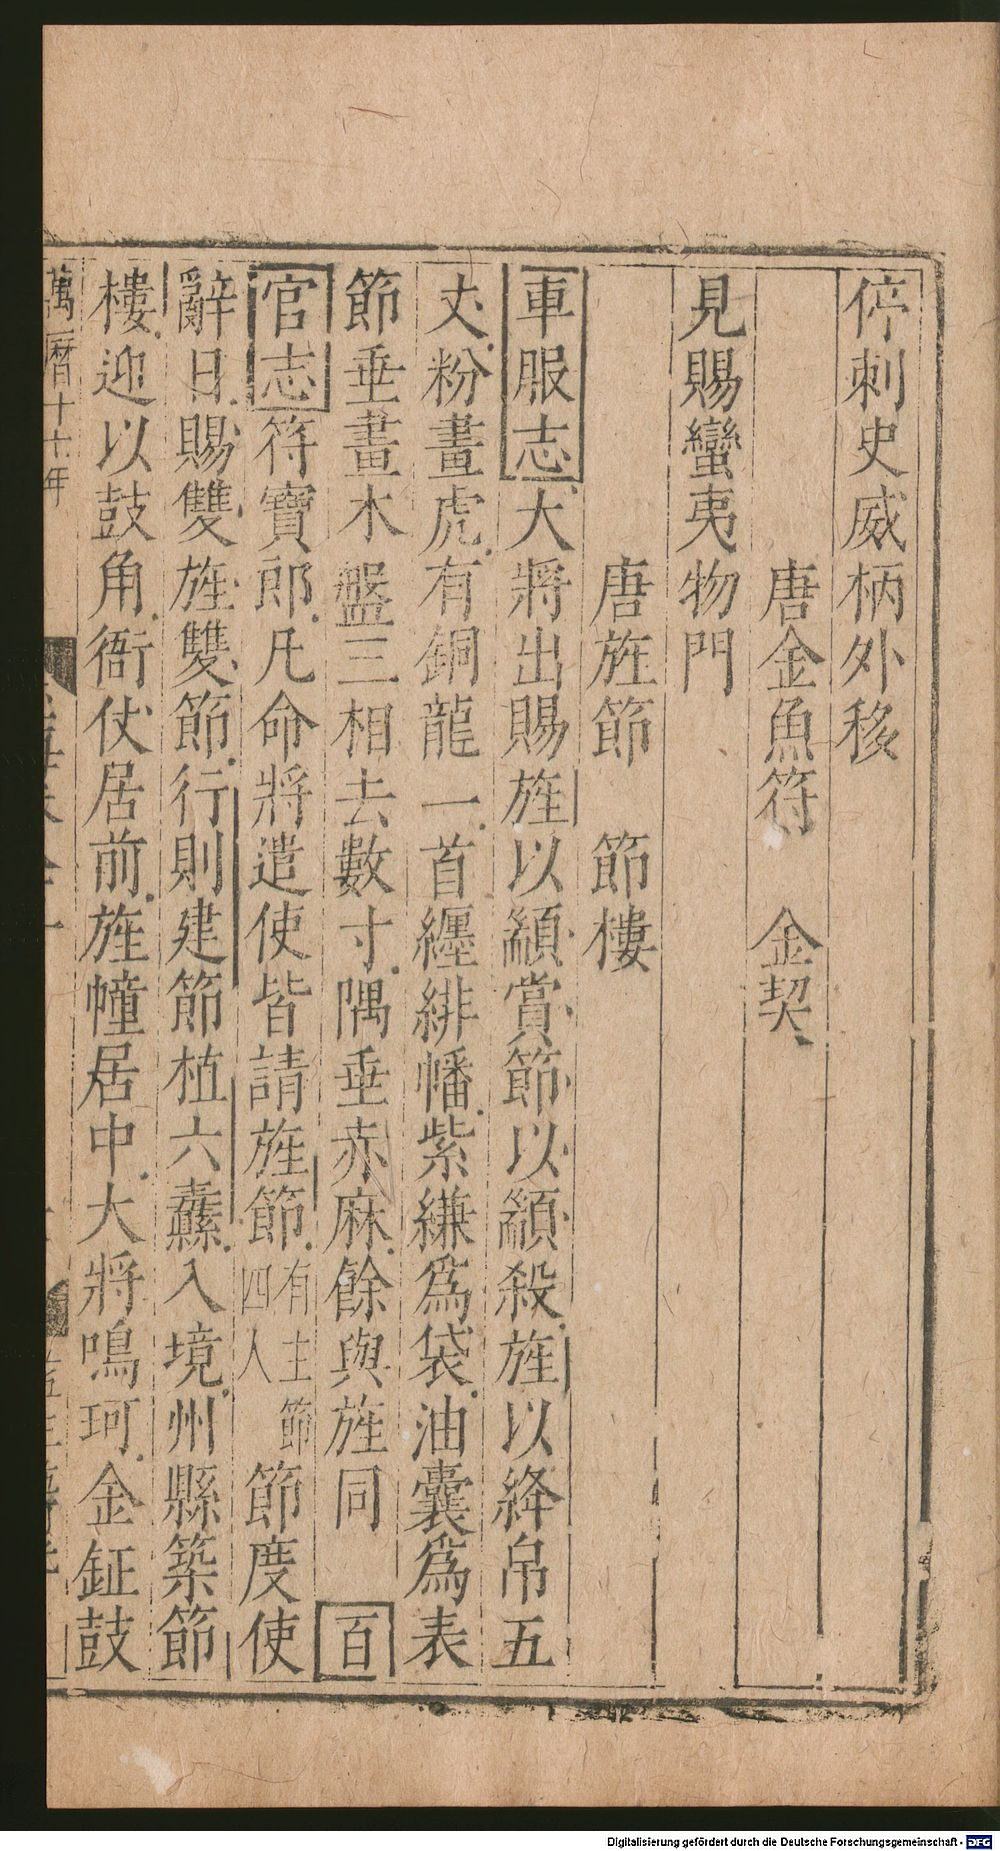 停刺史威柄外移
唐金魚符 金契
見賜蠻夷物門
唐旌節 節樓
車服志大將出賜旌以顓賞節以顓殺旌以絳帛五
丈粉畫虎有銅龍一首纒緋幡紫縑爲袋油囊爲表
節垂畫木盤三相去數寸隅垂赤麻餘與旌同 百
官志符寶郎凡命將遣使皆請旌節有主節四人節度使
辭日賜雙旌雙節行則建節植六纛入境州縣築節
樓迎以鼓角衙仗居前旌幢居中大將鳴珂金鉦鼓
萬曆十七年
Digitalisierung gefördert durch die Deutsche Forschungsgemeinschaft - DFG